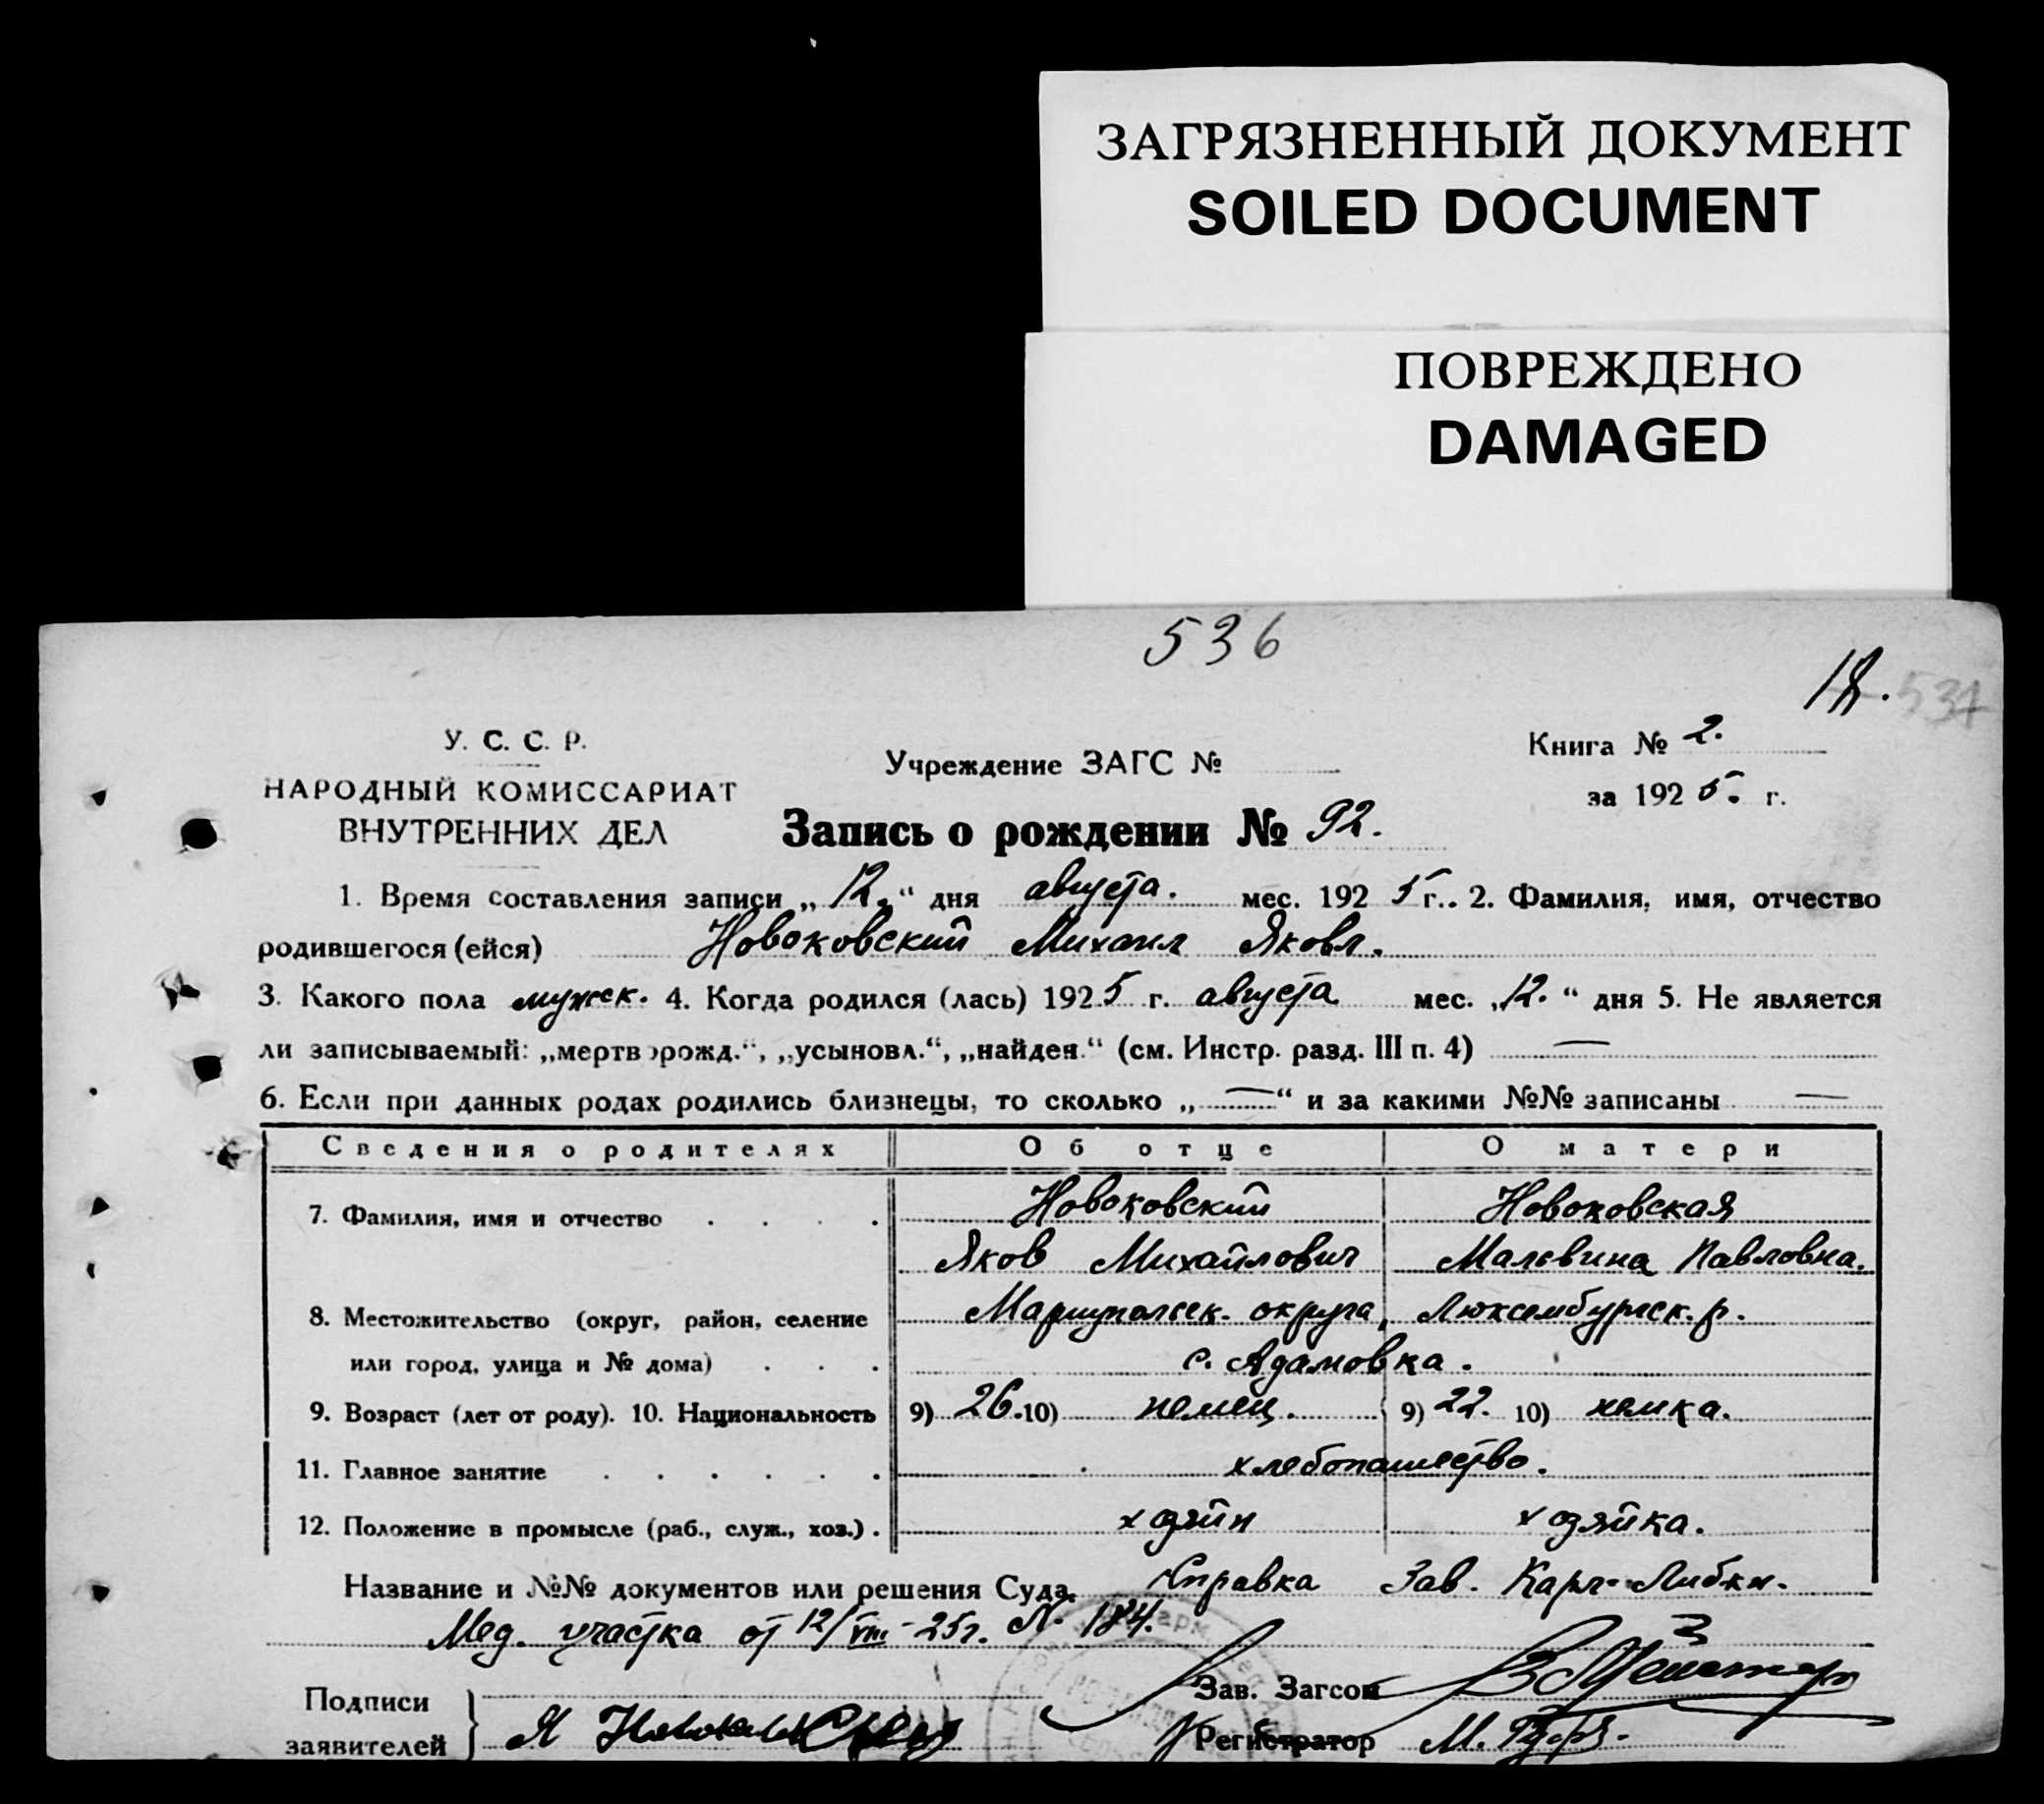 ЗАГРЯЗНЕННЫЙ ДОКУМЕНТ
SOILED DOCUMENT
ПОВРЕЖДЕНО
DAMAGED
536
18. 537
У. С. С. Р.
НАРОДНЫЙ КОМИССАРИАТ
ВНУТРЕННИХ ДЕЛ
Учреждение ЗАГС №
Книга № 2.
за 1925. г.
Запись о рождении № 92.
1. Время составления записи „12.“ дня августа. мес. 1925 г.. 2. Фамилия, имя, отчество
родившегося (ейся) Новоковский Михаил Яковл.
3. Какого пола мужск. 4. Когда родился (лась) 1925 г. августа мес. „12.“ дня 5. Не является
ли записываемый: „мертворожд.“, „усыновл.“, „найден.“ (см. Инстр. разд. III п. 4) —
6. Если при данных родах родились близнецы, то сколько „—“ и за какими №№ записаны —
Сведения о родителях Об отце О матери
7. Фамилия, имя и отчество . . . . Новоковский Новоковская
Яков Михайлович Мальвина Павловна.
8. Местожительство (округ, район, селение Мариупольск. округа, Люксембургск. р.
или город, улица и № дома) . . . с. Адамовка.
9. Возраст (лет от роду). 10. Национальность 9) 26. 10) немец. 9) 22. 10) немка.
11. Главное занятие . . . . . . хлебопашество.
12. Положение в промысле (раб., служ., хоз.) . хозяин хозяйка.
Название и №№ документов или решения Суда. Справка Зав. Карл-Либкн.
Мед. участка от 12/VIII-25г. № 184.
Подписи
заявителей
Я
Зав. Загсом
Регистратор М.